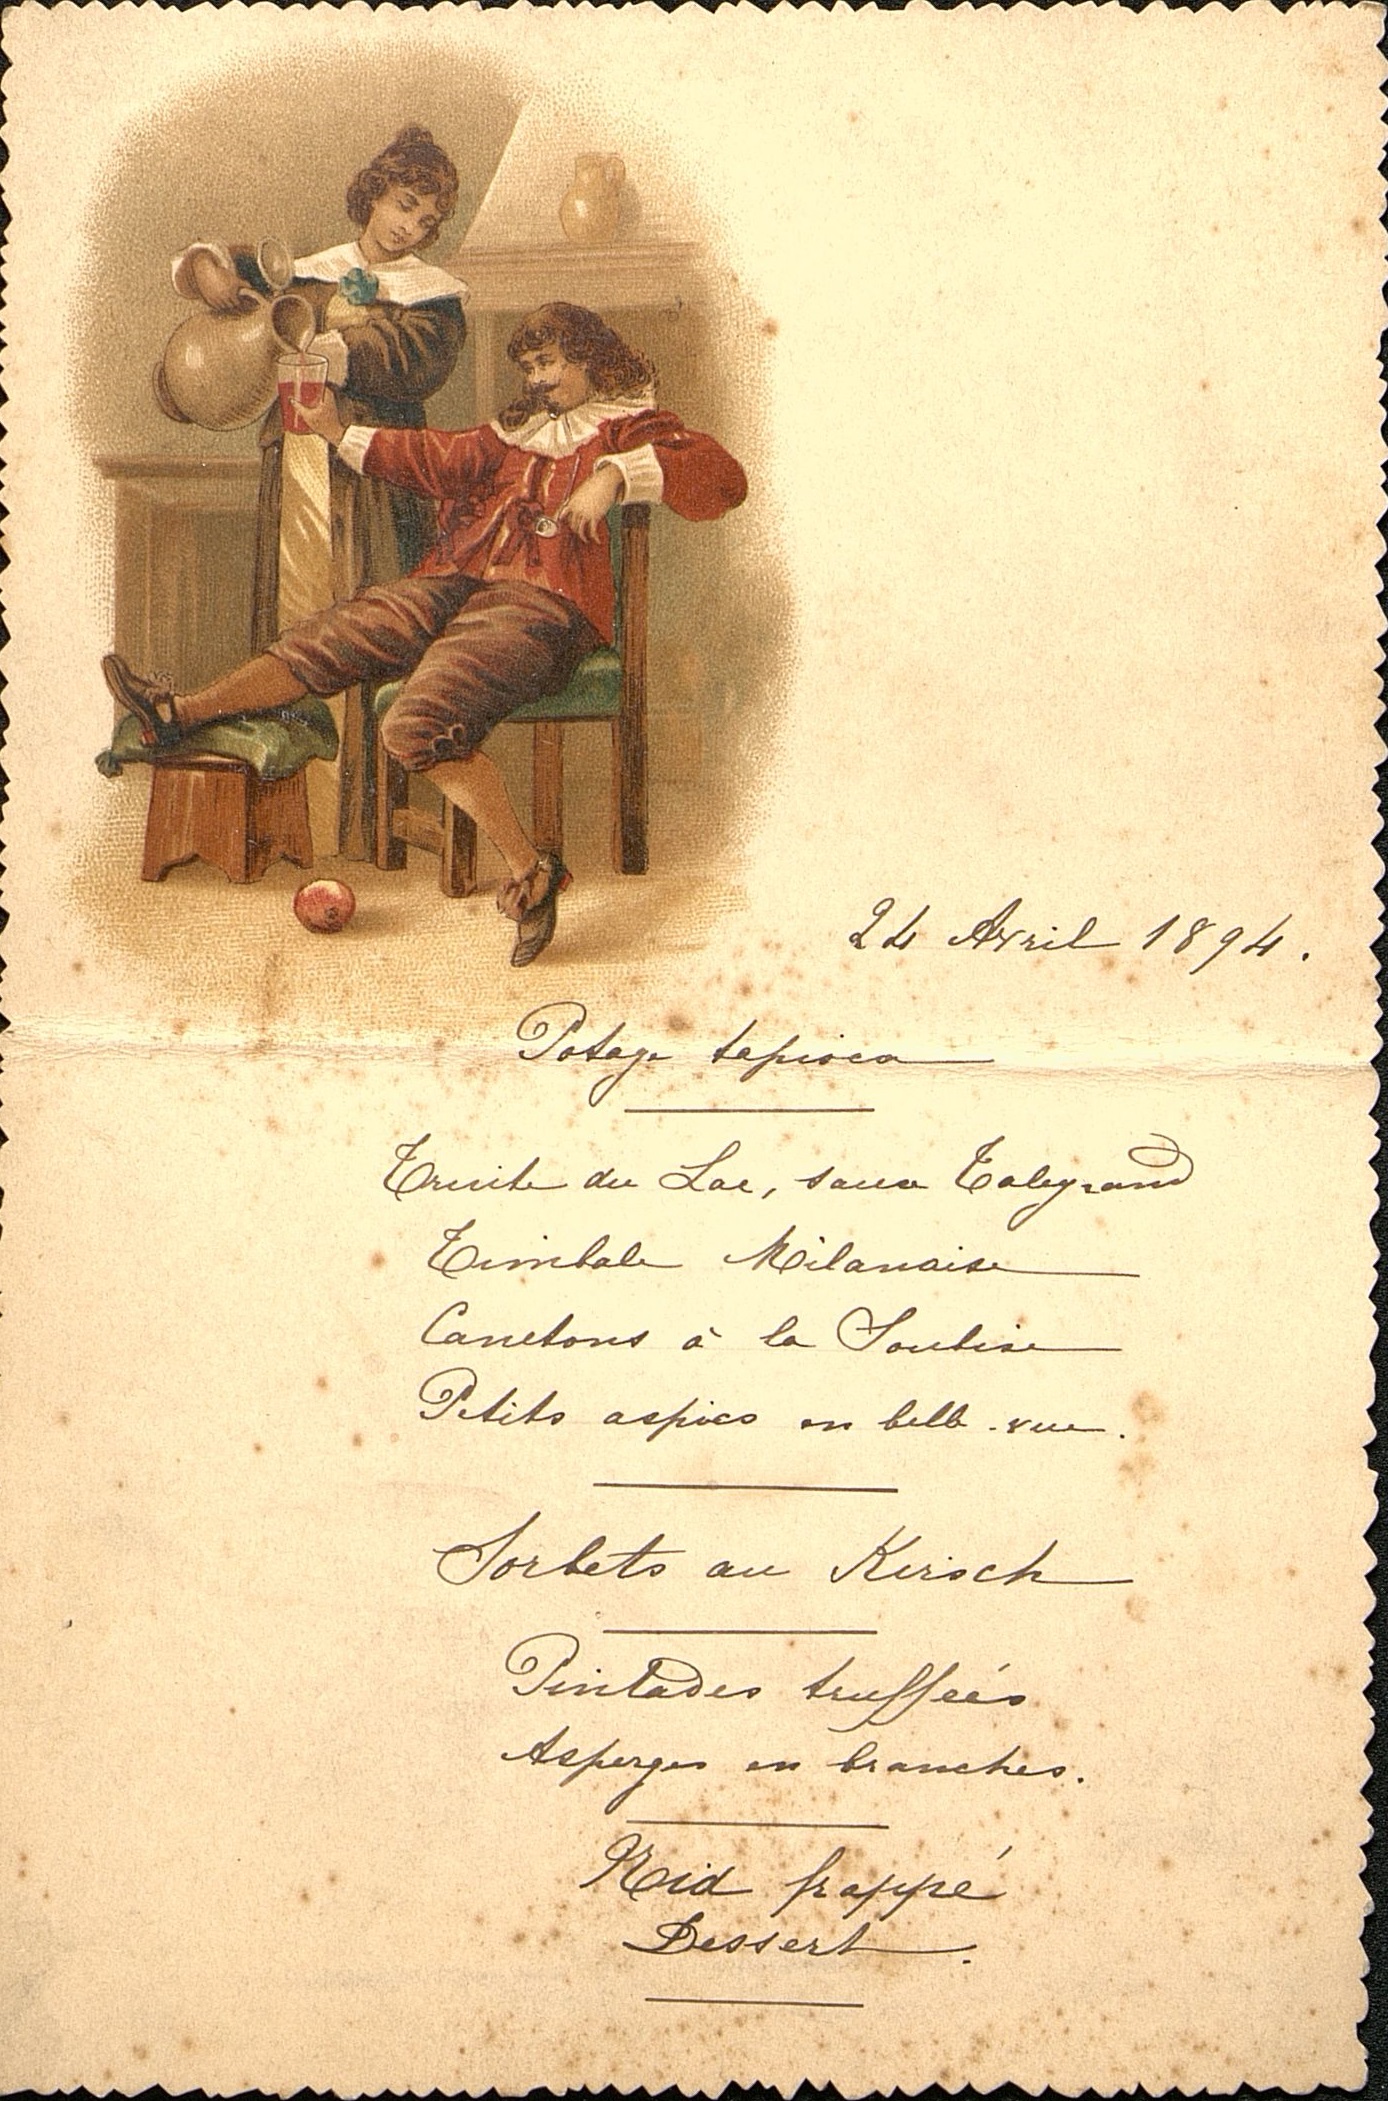 24 Avril 1894.
Potage tapioca
Truite du Lac, sauce Taleyrand
Timbale Milanaise
Canetons à la Soubise
Petits aspics en belle-vue.
Sorbets au Kirsch
Pintades truffées
Asperges en branches.
Nid frappé
Dessert.